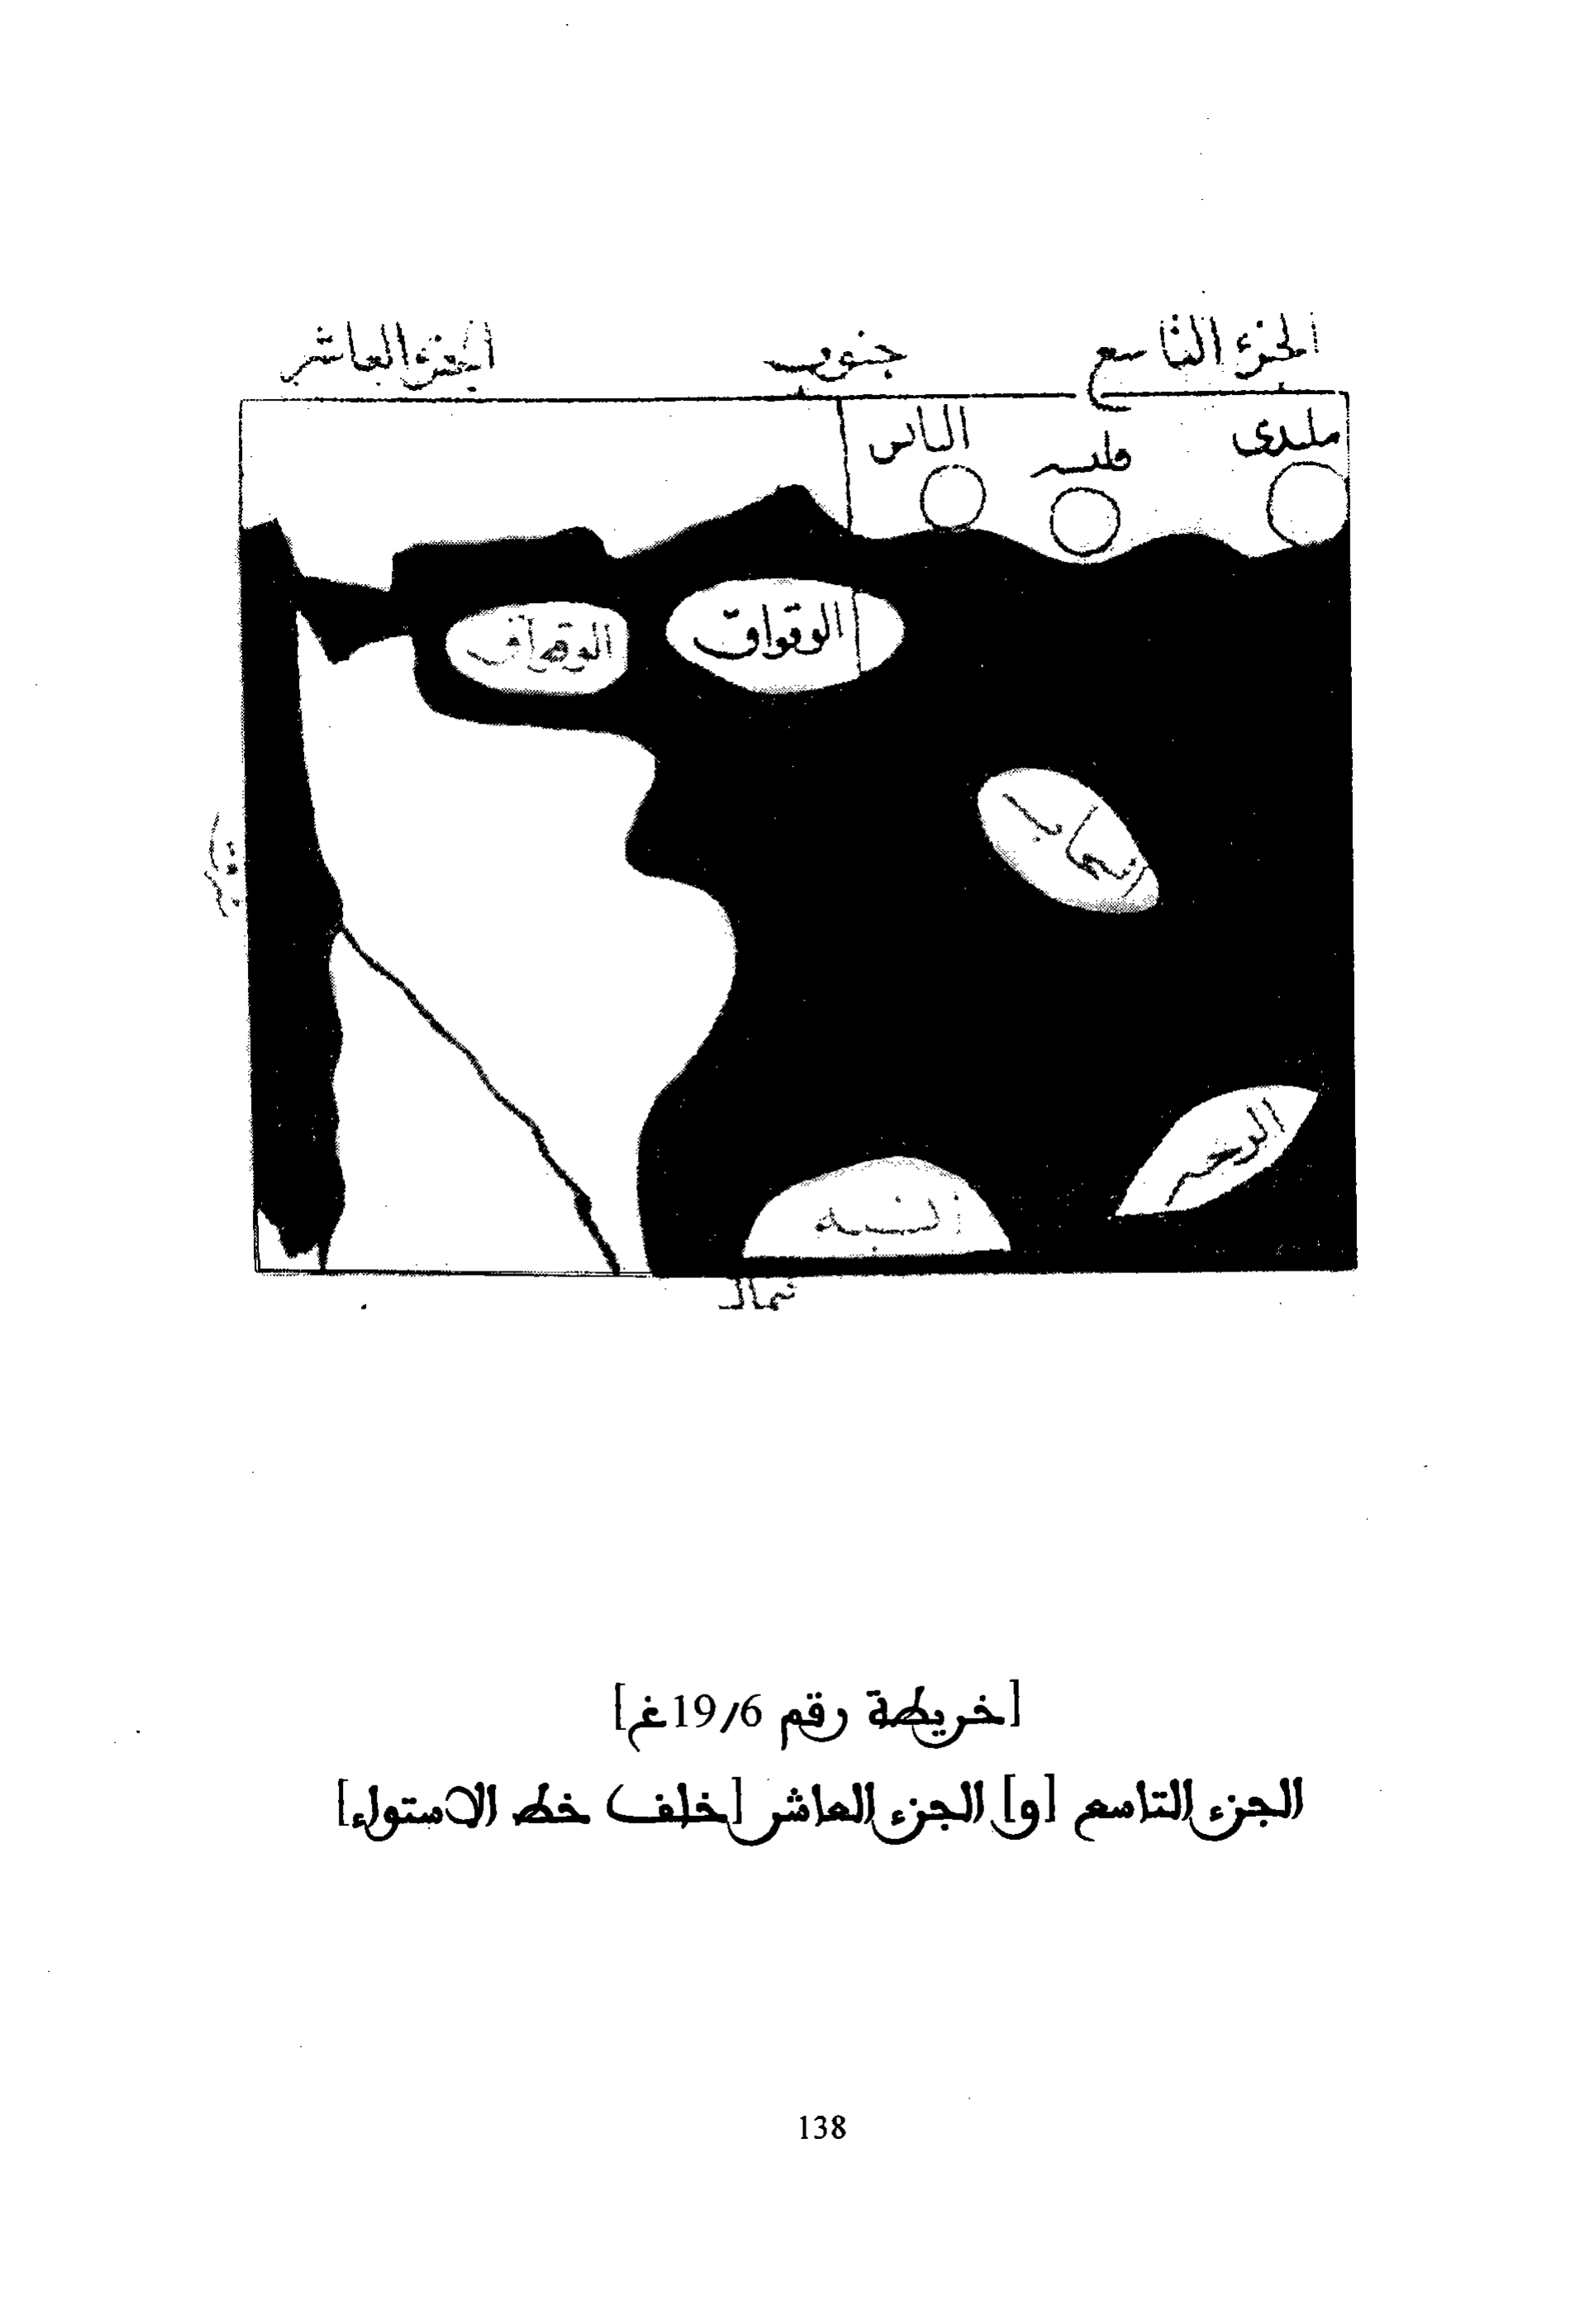 الجزء التاسع
جنوب
الجزء العاشر
ملندى
الباس
الوقواق
الوقواق
شمال
[خريطة رقم 19/6غم]
الجزء التاسع [و] الجزء العاشر [خلف خط الاستواء]
138